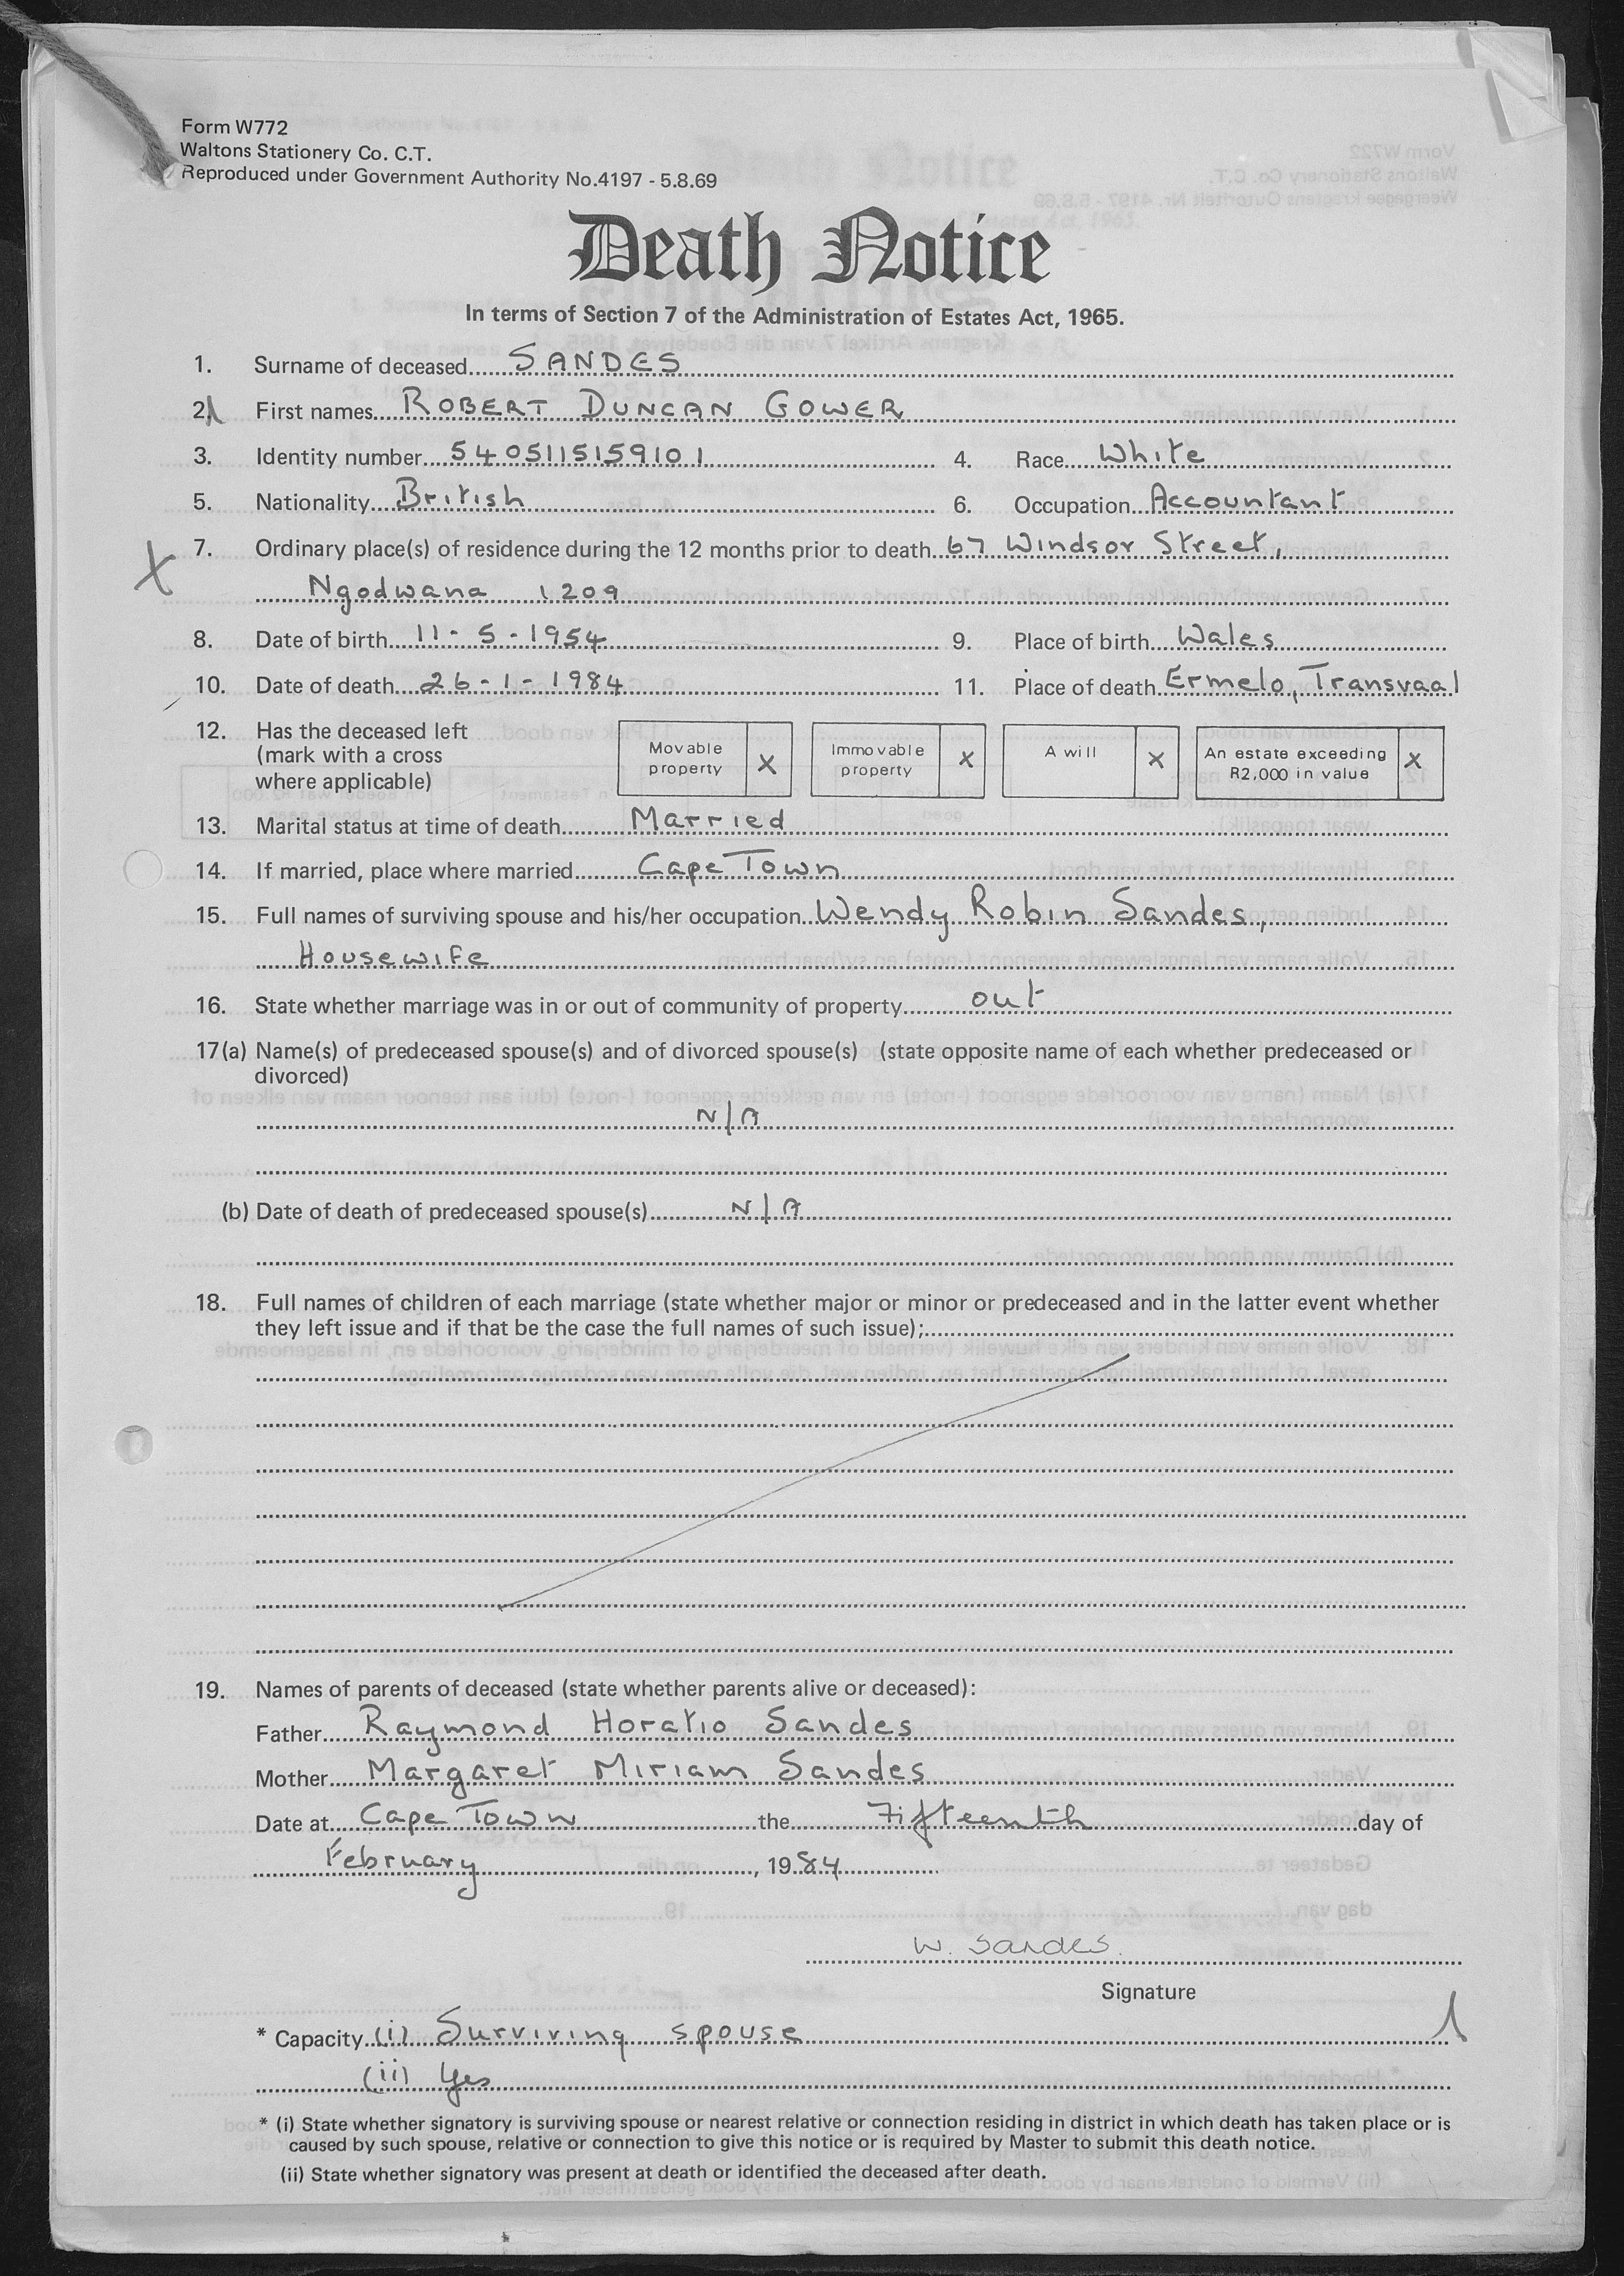 Form W772
Waltons Stationery Co. C.T.
Reproduced under Government Authority No.4197 - 5.8.69
Death Notice
In terms of Section 7 of the Administration of Estates Act, 1965.
1. Surname of deceased SANDES
2. First names ROBERT DUNCAN GOWER
3. Identity number 5405115159101 4. Race White
5. Nationality British 6. Occupation Accountant
7. Ordinary place(s) of residence during the 12 months prior to death 67 Windsor Street,
Ngodwana 1209
8. Date of birth 11-5-1954 9. Place of birth Wales
10. Date of death 26-1-1984 11. Place of death Ermelo, Transvaal
12. Has the deceased left
(mark with a cross
where applicable)
Movable property X Immovable property X A will X An estate exceeding R2,000 in value X
13. Marital status at time of death Married
14. If married, place where married Cape Town
15. Full names of surviving spouse and his/her occupation Wendy Robin Sandes,
Housewife
16. State whether marriage was in or out of community of property out
17(a) Name(s) of predeceased spouse(s) and of divorced spouse(s) (state opposite name of each whether predeceased or
divorced)
N/A
(b) Date of death of predeceased spouse(s) N/A
18. Full names of children of each marriage (state whether major or minor or predeceased and in the latter event whether
they left issue and if that be the case the full names of such issue);
19. Names of parents of deceased (state whether parents alive or deceased):
Father Raymond Horatio Sandes
Mother Margaret Miriam Sandes
Date at Cape Town the Fifteenth day of
February, 1984
W. Sandes.
Signature
* Capacity (i) Surviving spouse
(iii) Yes
* (i) State whether signatory is surviving spouse or nearest relative or connection residing in district in which death has taken place or is
caused by such spouse, relative or connection to give this notice or is required by Master to submit this death notice.
(ii) State whether signatory was present at death or identified the deceased after death.